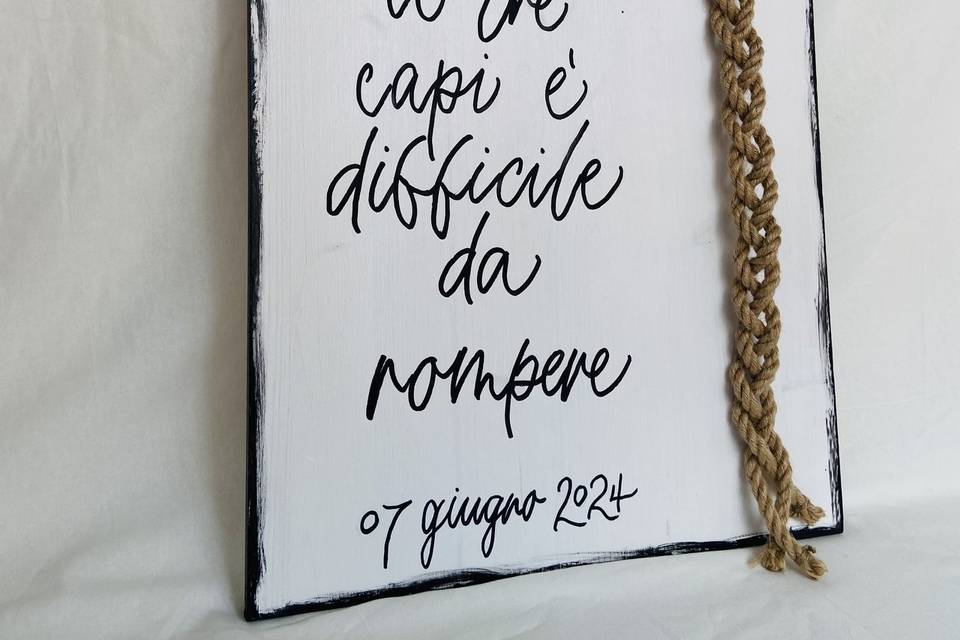 tre
capi é
difficile
da
rompere
07 giugno 2024